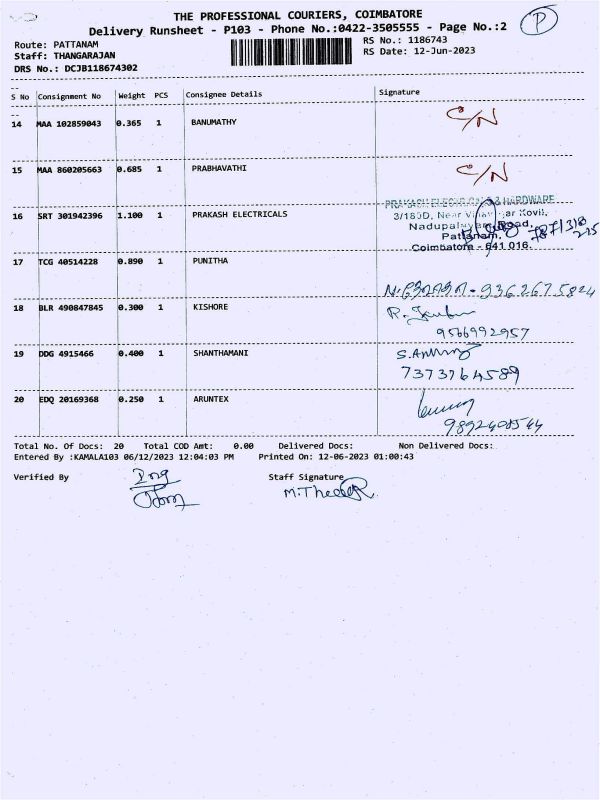 THE PROFESSIONAL COURIERS, COIMBATORE
Delivery Runsheet - P103 - Phone No.:0422-3505555 - Page No.:2
P
Route: PATTANAM
RS No.: 1186743
Staff: THANGARAJAN
RS Date: 12-Jun-2023
DRS No.: DCJB118674302
S No Consignment No Weight PCS Consignee Details Signature
14 MAA 102859043 0.365 1 BANUMATHY C/N
15 MAA 860205663 0.685 1 PRABHAVATHI C/N
PRAKASH ELECTRICALS & HARDWARE
16 SRT 301942396 1.100 1 PRAKASH ELECTRICALS 3/180D, Near Vinayagar Kovil,
Nadupalayam Road,
Pattanam,
Coimbatore - 641 016.
17 TCG 40514228 0.890 1 PUNITHA
9362675824
18 BLR 490847845 0.300 1 KISHORE
9566992957
19 DDG 4915466 0.400 1 SHANTHAMANI
7373764589
20 EDQ 20169368 0.250 1 ARUNTEX
Total No. Of Docs: 20 Total COD Amt: 0.00 Delivered Docs: Non Delivered Docs:
Entered By :KAMALA103 06/12/2023 12:04:03 PM Printed On: 12-06-2023 01:00:43
Verified By Staff Signature